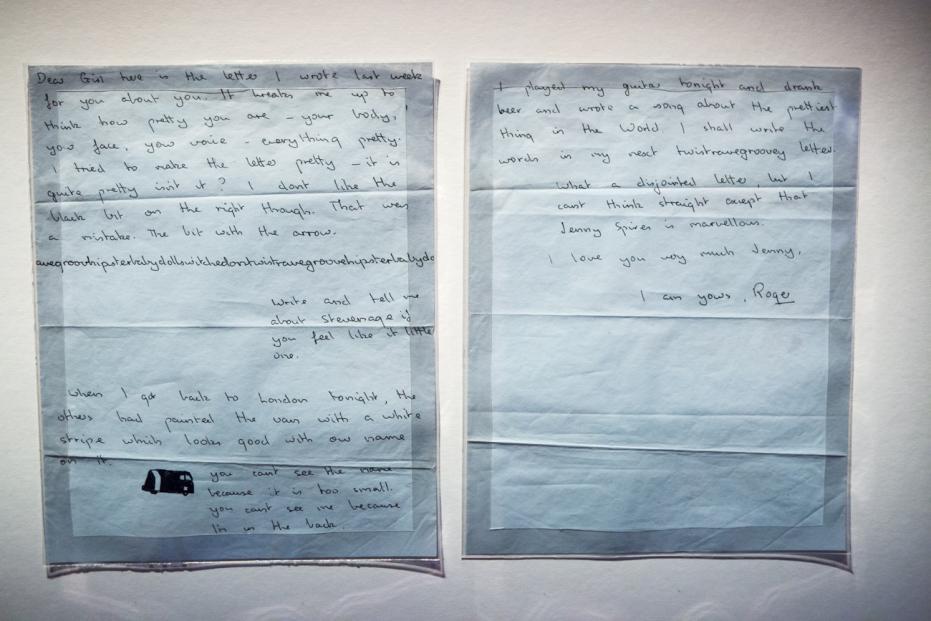 Dear Girl here is the letter I wrote last week
for you about you. It breaks me up to
think how pretty you are – your body,
your face, your voice – everything pretty.
I tried to make the letter pretty – it is
quite pretty isn't it? I dont like the
black bit on the right though. That was
a mistake. The bit with the arrow.
avegroovhipsterbabydollswitchedontwistravegroovehipsterbabydo
Write and tell me
about Stevenage if
you feel like it little
one.
When I got back to London tonight, the
others had painted the van with a white
stripe which looks good with our name
on it.
you cant see the name
because it is too small.
you cant see me because
I'm in the back.
I played my guitar tonight and drank
beer and wrote a song about the prettiest
thing in the World I shall write the
words in my next twistravegroovey letter.
What a disjointed letter, but I
cant think straight except that
Jenny Spires is marvellous.
I love you very much Jenny,
I am yours, Roger